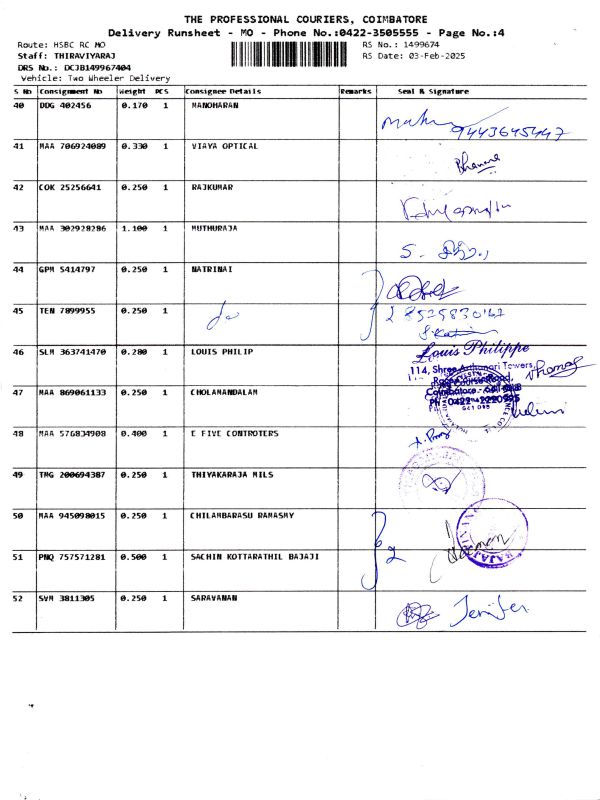 THE PROFESSIONAL COURIERS, COIMBATORE
Delivery Runsheet - MO - Phone No.:0422-3505555 - Page No.:4
Route: HSBC RC MO RS No.: 1499674
Staff: THIRAVIYARAJ RS Date: 03-Feb-2025
DRS No.: DCJB149967404
Vehicle: Two Wheeler Delivery
S No Consignment No Weight PCS Consignee Details Remarks Seal & Signature
40 DDG 402456 0.170 1 MANOHARAN
9443645447
41 MAA 706924089 0.330 1 VIAYA OPTICAL
42 COK 25256641 0.250 1 RAJKUMAR
43 MAA 302928286 1.100 1 MUTHURAJA
44 GPM 5414797 0.250 1 NATRINAI
45 TEN 7899955 0.250 1
46 SLM 363741470 0.280 1 LOUIS PHILIP
Louis Philippe
114, Shree Towers,
Race Course Road,
Coimbatore
Ph: 0422-2220995
47 MAA 869061133 0.250 1 CHOLAMANDALAM
48 MAA 576834908 0.400 1 E FIVE CONTROTERS
49 TMG 200694387 0.250 1 THIYAKARAJA MILS
50 MAA 945098015 0.250 1 CHILAMBARASU RAMASMY
51 PNQ 757571281 0.500 1 SACHIN KOTTARATHIL BAJAJI
2
52 SVM 3811305 0.250 1 SARAVANAN
Jenifer